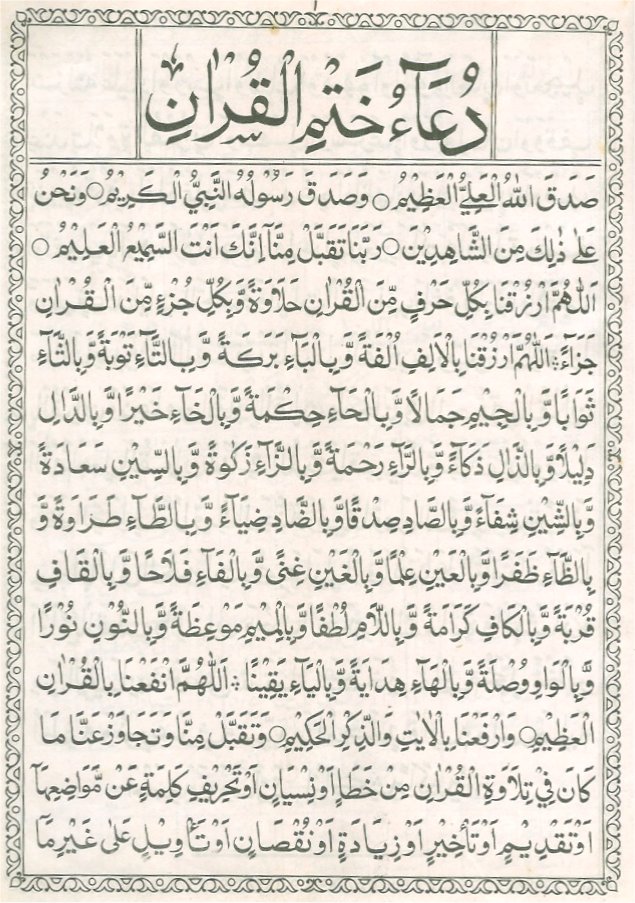 دُعَآءُ خَتْمِ الْقُرْاٰنِ
صَدَقَ اللّٰهُ الْعَلِيُّ الْعَظِيْمُ ○ وَصَدَقَ رَسُوْلُهُ النَّبِيُّ الْكَرِيْمُ ○ وَنَحْنُ
عَلٰى ذٰلِكَ مِنَ الشَّاهِدِيْنَ ○ رَبَّنَا تَقَبَّلْ مِنَّآ اِنَّكَ اَنْتَ السَّمِيْعُ الْعَلِيْمُ ○
اَللّٰهُمَّ ارْزُقْنَا بِكُلِّ حَرْفٍ مِّنَ الْقُرْاٰنِ حَلَاوَةً وَّبِكُلِّ جُزْءٍ مِّنَ الْقُرْاٰنِ
جَزَآءً اَللّٰهُمَّ ارْزُقْنَا بِالْاَلِفِ اُلْفَةً وَّبِالْبَآءِ بَرَكَةً وَّبِالتَّآءِ تَوْبَةً وَّبِالثَّآءِ
ثَوَابًا وَّبِالْجِيْمِ جَمَالًا وَّبِالْحَآءِ حِكْمَةً وَّبِالْخَآءِ خَيْرًا وَّبِالدَّالِ
دَلِيْلًا وَّبِالذَّالِ ذَكَآءً وَّبِالرَّآءِ رَحْمَةً وَّبِالزَّآءِ زَكٰوةً وَّبِالسِّيْنِ سَعَادَةً
وَّبِالشِّيْنِ شِفَآءً وَّبِالصَّادِ صِدْقًا وَّبِالضَّادِ ضِيَآءً وَّبِالطَّآءِ طَرَاوَةً وَّ
بِالظَّآءِ ظَفَرًا وَّبِالْعَيْنِ عِلْمًا وَّبِالْغَيْنِ غِنًى وَّبِالْفَآءِ فَلَاحًا وَّبِالْقَافِ
قُرْبَةً وَّبِالْكَافِ كَرَامَةً وَّبِاللَّامِ لُطْفًا وَّبِالْمِيْمِ مَوْعِظَةً وَّبِالنُّوْنِ نُوْرًا
وَّبِالْوَاوِ وُصْلَةً وَّبِالْهَآءِ هِدَايَةً وَّبِالْيَآءِ يَقِيْنًا اَللّٰهُمَّ انْفَعْنَا بِالْقُرْاٰنِ
الْعَظِيْمِ ○ وَارْفَعْنَا بِالْاٰيٰتِ وَالذِّكْرِ الْحَكِيْمِ ○ وَتَقَبَّلْ مِنَّا وَتَجَاوَزْ عَنَّا مَا
كَانَ فِيْ تِلَاوَةِ الْقُرْاٰنِ مِنْ خَطَاٍ اَوْ نِسْيَانٍ اَوْ تَحْرِيْفِ كَلِمَةٍ عَنْ مَّوَاضِعِهَآ
اَوْ تَقْدِيْمٍ اَوْ تَاْخِيْرٍ اَوْ زِيَادَةٍ اَوْ نُقْصَانٍ اَوْ تَاْوِيْلٍ عَلٰى غَيْرِ مَآ